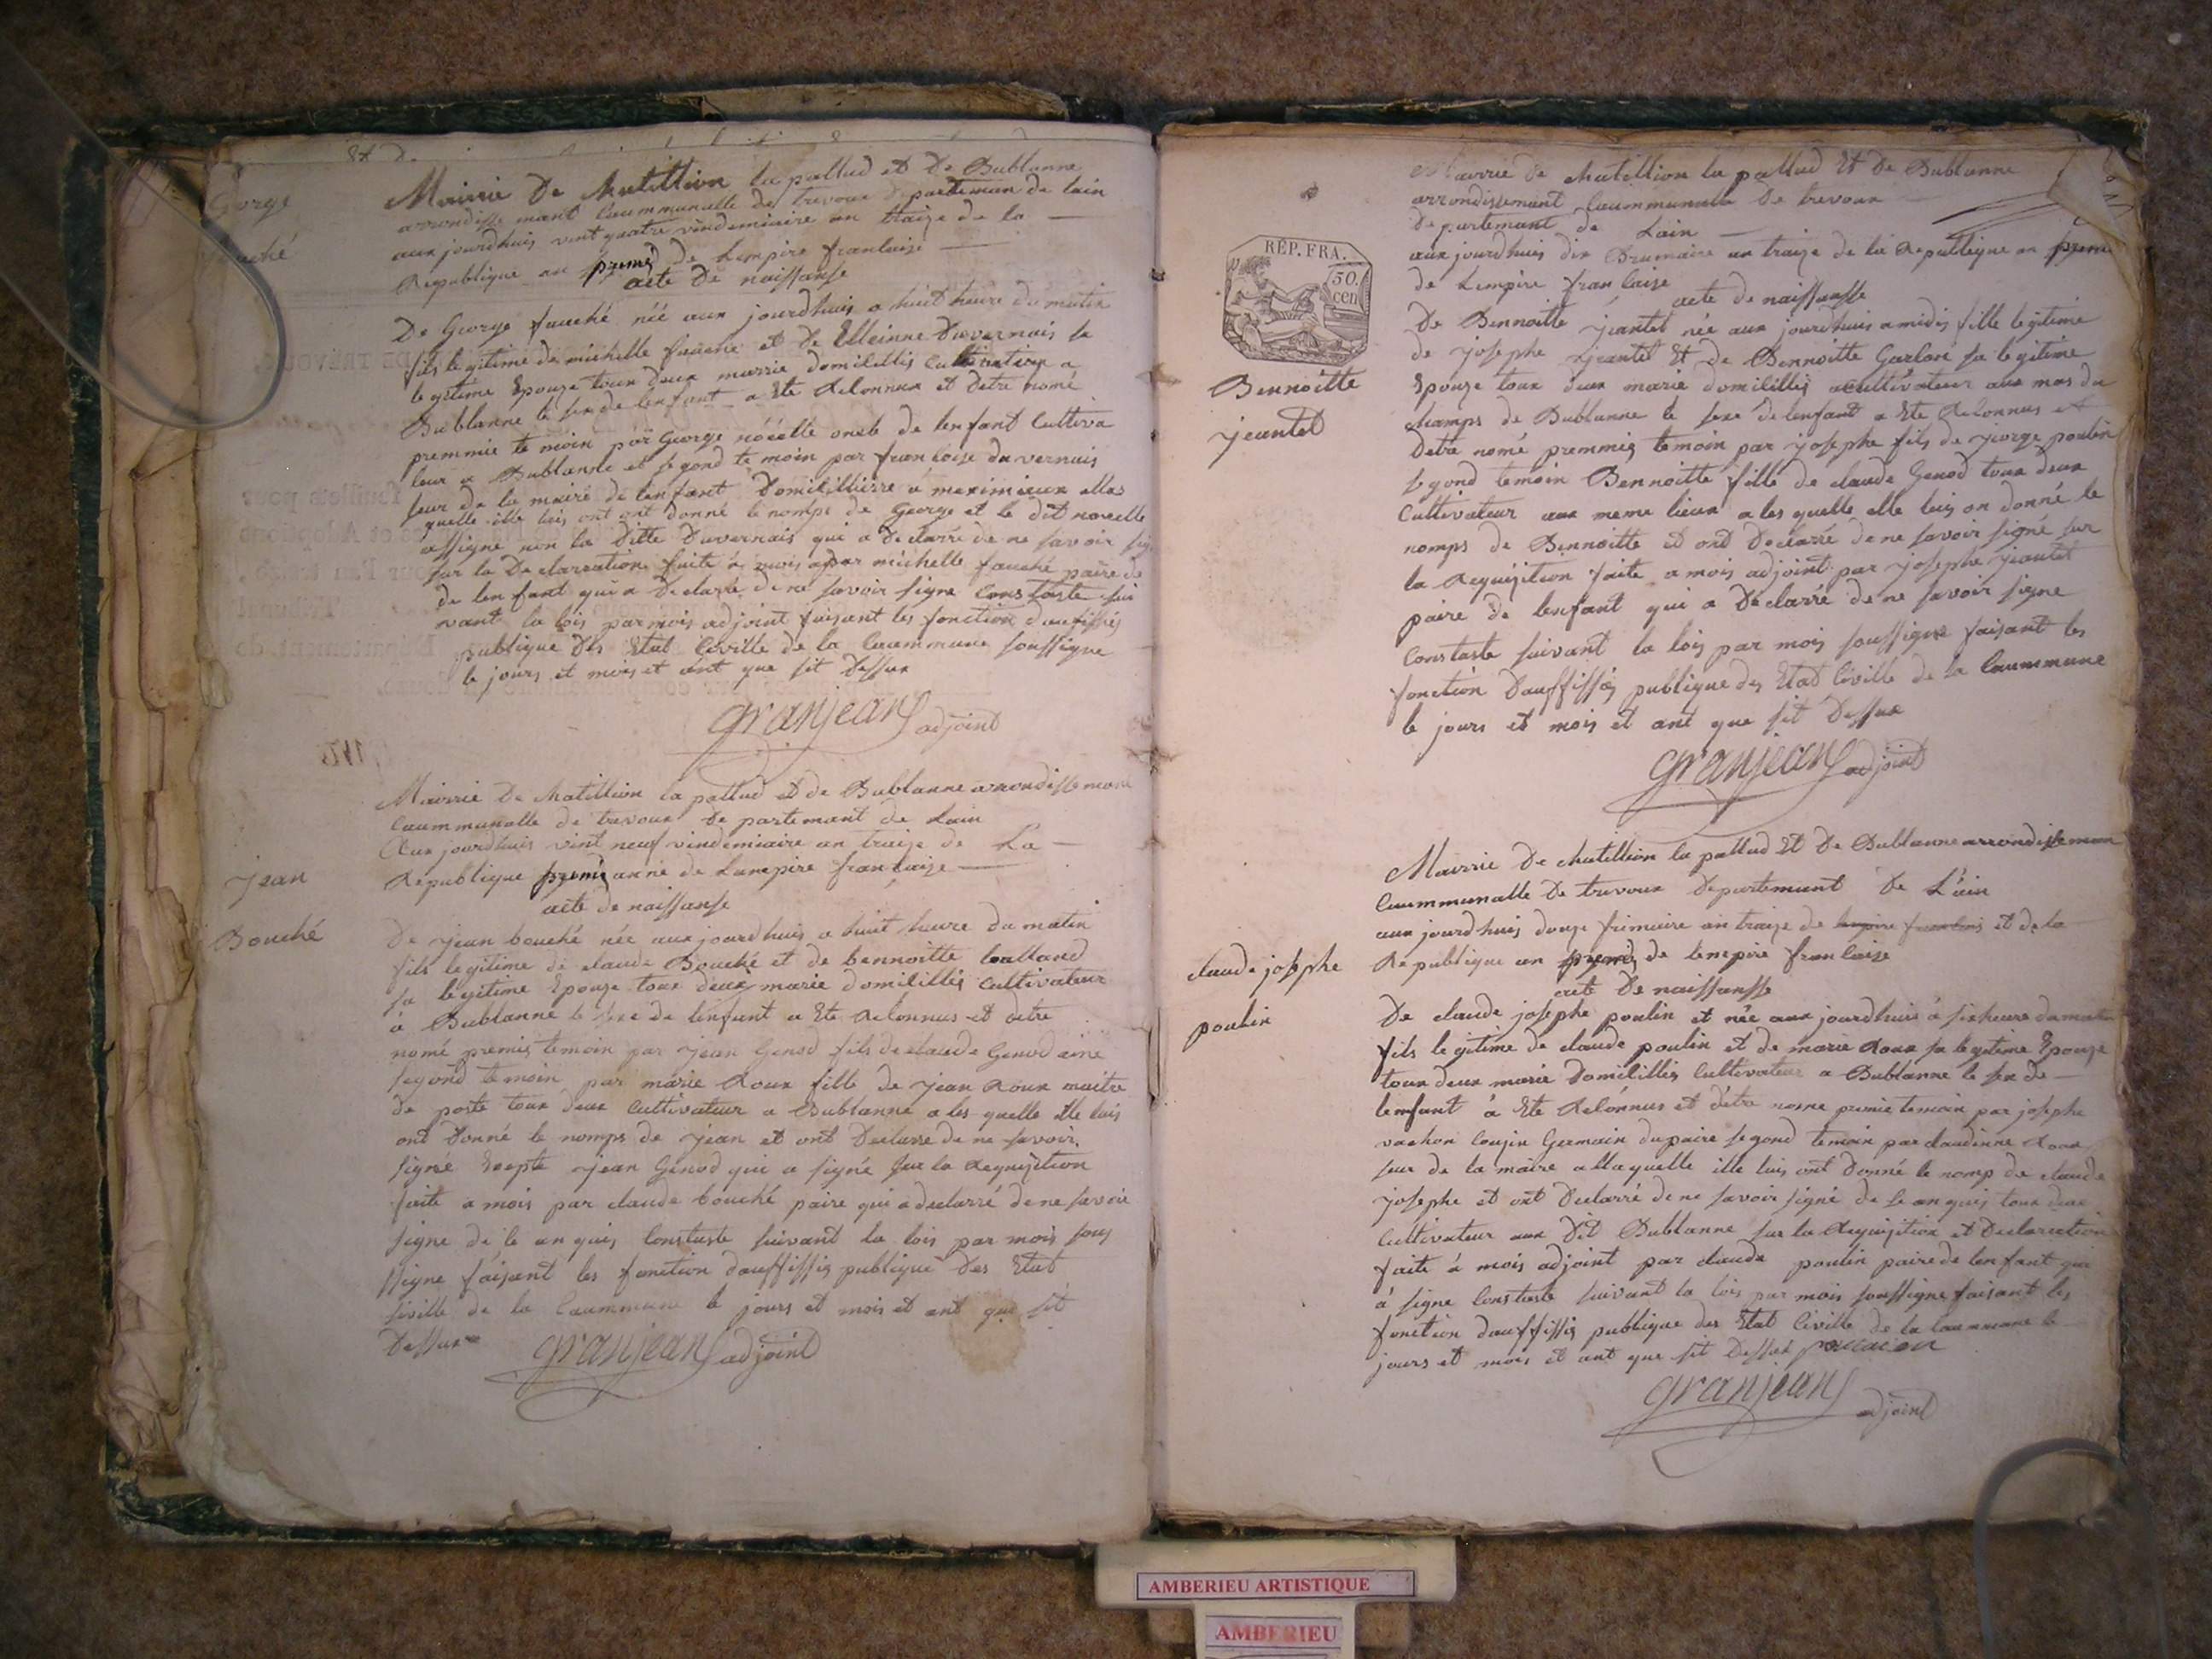 Gorge
Mairie De Chatillion la pallud et De Bublanne
arrondissemant Caummunalle de trevoux departeman de lain
aux jourdhuis vint quatre vindemiaire an traize de la
Republique an premié de Lempire franlaise
acte De naissanse
De George fauché née aux jourdhuis a huit heure du matin
fils legitime de michelle fauché et de Etteinne Duvernais sa
legitime Epouze toux deux marrie domicillis cultivateur a
Bublanne le sex de lenfant a Ete Relonnux et detre nomé
premmie te moin par George nóéelle oncle de lenfant Cultiva
leur a Bublanne et segond te moin par franloise du vernais
seur de la mairé de lenfant Domicilliere a meximieux allas
quelle ille luis ont ont donné le nomps de George et le dit novelle
assigné non la Ditte Duvernais qui a Declarré de ne savoir
sur la De claration faite á mois par michelle fauché paire de
de lenfant qui a Declarré de ne savoir signe Constaste sui
vant la lois par mois adjoint faisant les fonction dauffissiés
publique Des Etat Civille de la Caummune soussigne
le jours et mois et ant que sit Dessux
granjean adjoint
Jean
Bouché
Mairrie De Chatillion la pallud et de Bublanne arrondissemant
Caummunalle de trevoux De partemant de Lain
Aux jourdhuis vint neuf vindemiaire an traize de La
Republique premie anné de Lempire franlaise
acte de naissanse
De Jean bouché née aux jourdhuis a huit heure du matin
fils legitime de claude Bouché et de bennoitte
sa legitime Epouze toux deux marie domicillis Cultivateur
á Bublanne le sexe de lenfant a Ete Relonnus et detre
nomé premie temoin par Jean Genod fils de claude Genod ainé
segond temoin par marie Roux fille de Jean Roux maitre
de poste toux deux Cultivateur a Bublanne a les quelle ille luis
ont Donné le nomps de Jean et ont Declarre de ne savoir
signé Exepte Jean Genod qui a signé sur la Requisition
faite a mois par claude bouché paire qui a declarré de ne savoir
signe de le anquis Constaste suivant la lois par mois sous
ssigne faisant les fonction dauffissiés publique Des Etat
siville de la Caummune le jours et mois et ant que sit
Dessux granjean adjoint
RÉP. FRA.
50.
cen
Bennoitte
jeantet
Mairrie de Chatillion la pallud Et De Bublanne
arrondissemant Caummunalle De trevoux
De partemant de Lain
aux jourdhuis dix Brumaire an traize de la Republique an premi
de Lempire franlaise
acte de naissansse
De Bennoitte jeantet née aux jourdhuis a midis fille legitime
de josephe jeantet Et de Bennoitte Garlon sa legitime
Epouze toux deux marie domicillis Cultivateur aux mas du
champs de Bublanne le sexe de lenfant a Ete Relonnus et
Detre nomé premmie temoin par josephe fils de jiorge poulin
segond temoin Bennoitte fille de claude Genod toux deux
Cultivateur aux meme lieux a les quelle elle luis on donné le
nomps de Bennoitte et ont Declarré de ne savoir signé sur
la Requisition faite a mois adjoint par josephe jeantet
paire de lenfant qui a Declarre de ne savoir signe
Constaste suivant la lois par mois soussigne faisant les
fonction Dauffissiés publique des Etat Civille de la Caummune
le jours et mois et ant que sit Dessux
granjean adjoint
claude josephe
poulin
Mairrie De Chatillion la pallud Et De Bublanne arrondisseman
Caummunalle De trevoux Departemant De L'ain
aux jourdhuis douze frimaire an traize de et de la
Republique an premié de lempire franlaise
acte De naissansse
De claude josephe poulin et née aux jourdhuis á six heure du matin
fils legitime de claude poulin et de marie Roux sa legitime Epouze
toux deux marie Domicillis Cultivateur a Bublanne le sex de
lenfant á Ete Relonnus et détre nome premie temoin par josephe
vachon Couzin Germain du paire segond temoin par claudinne Roux
seur de la maire alla quelle ille luis ont Donné le nomp de claude
josephe et ont Declarré de ne savoir signé de le anquis toux deux
Cultivateur aux Dit Bublanne sur la Requisition et Declarration
faite á mois adjoint par claude poulin paire de lenfant qui
á signe Constaste suivant la lois par mois soussigne faisant les
fonction dauffissiés publique des Etat Civille de la Caummune le
jours et mois et ant que sit Dessux
granjean
adjoint
AMBERIEU ARTISTIQUE
AMBERIEU